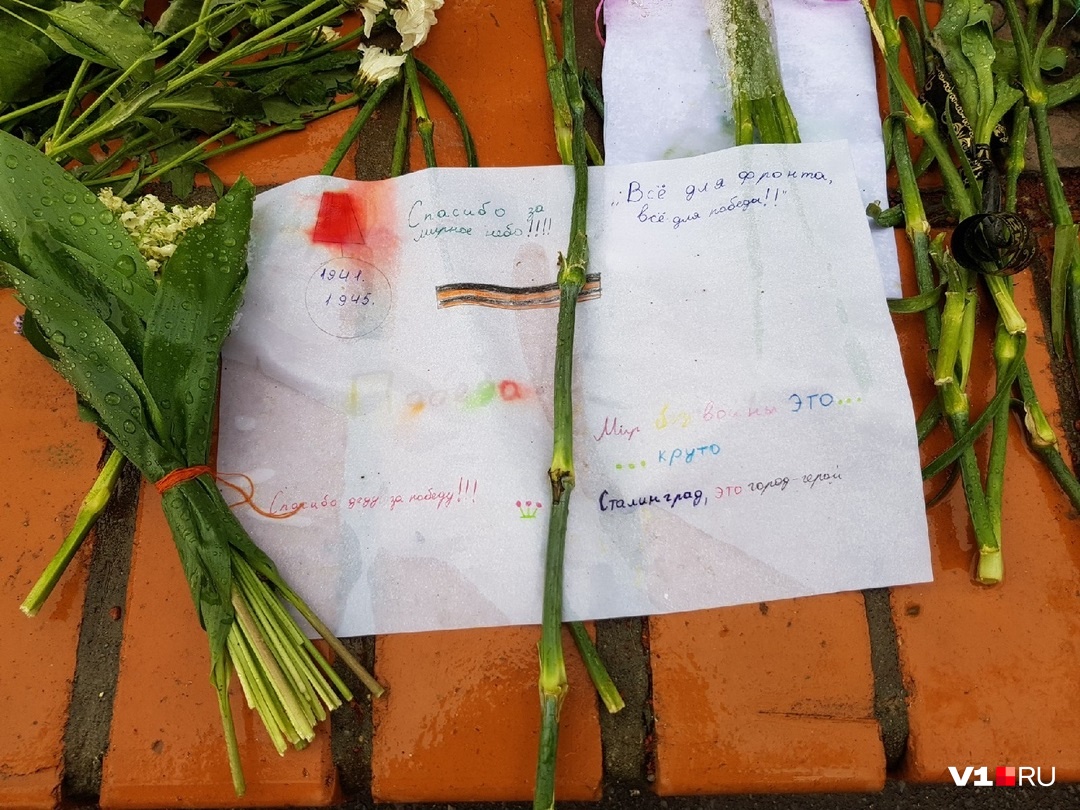 Спасибо за
мирное небо!!!!
1941.
1945.
"Всё для фронта,
всё для победа!!"
Победа
Мир без войны это...
... круто
Спасибо деду за победу!!!
Сталинград, это город-герой
V1 RU